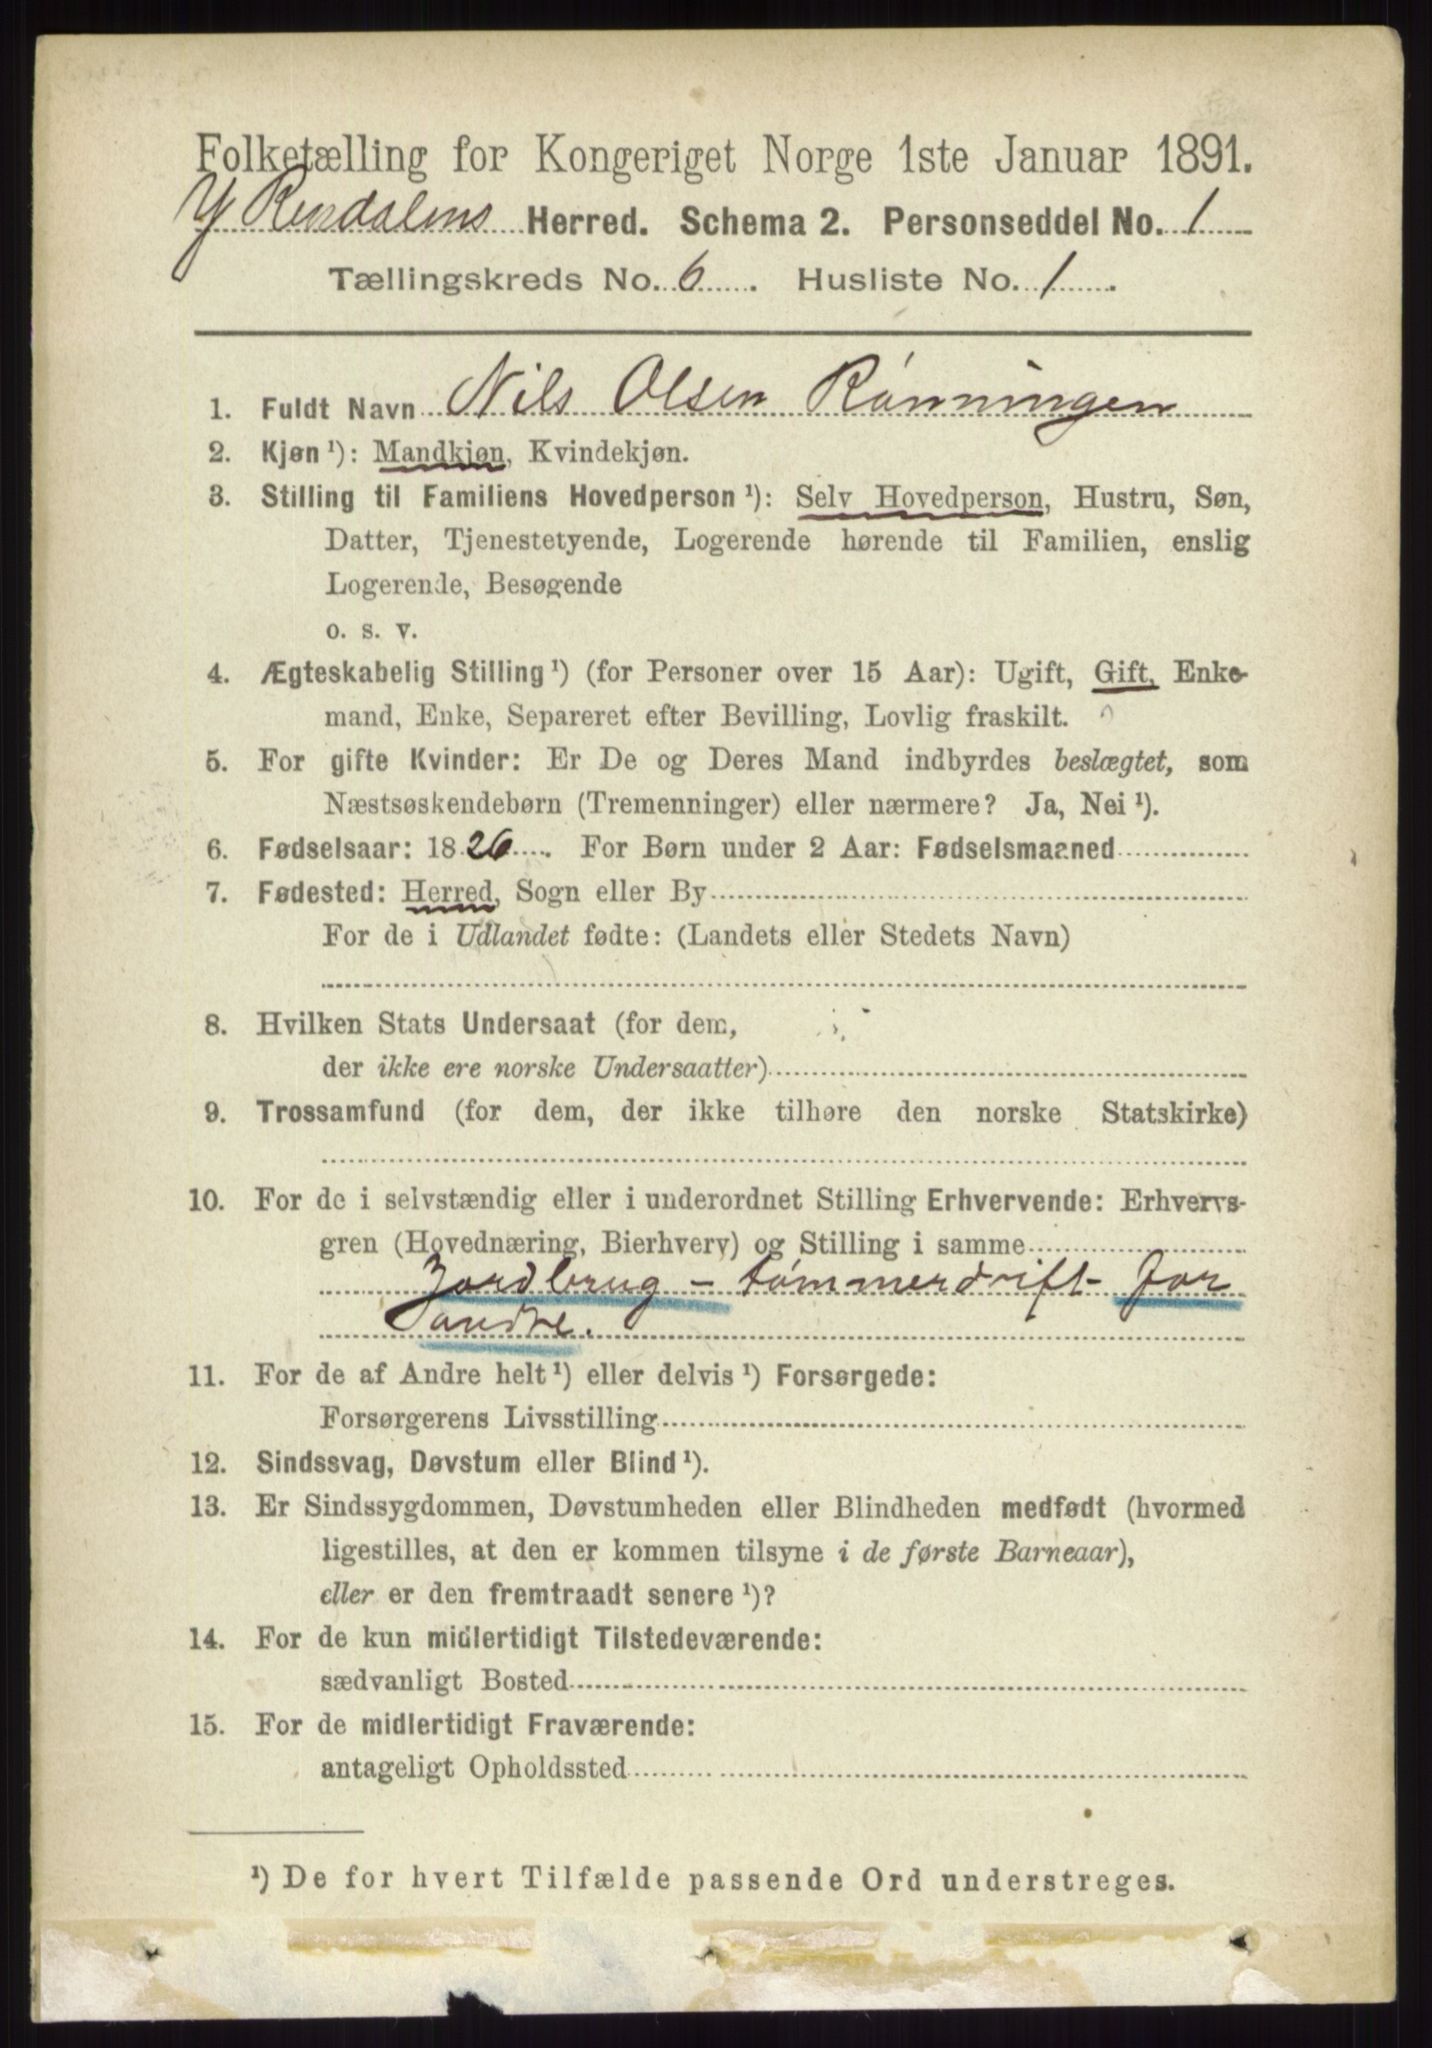 Folketælling for Kongeriget Norge 1ste Januar 1891.
Y Rendalens Herred. Schema 2. Personseddel No. 1
Tællingskreds No. 6. Husliste No. 1.
1. Fuldt Navn Nils Olsen Rønningen
2. Kjøn ¹): Mandkjøn, Kvindekjøn.
3. Stilling til Familiens Hovedperson ¹): Selv Hovedperson, Hustru, Søn,
Datter, Tjenestetyende, Logerende hørende til Familien, enslig
Logerende, Besøgende
o. s. v.
4. Ægteskabelig Stilling ¹) (for Personer over 15 Aar): Ugift, Gift, Enke-
mand, Enke, Separeret efter Bevilling, Lovlig fraskilt.
5. For gifte Kvinder: Er De og Deres Mand indbyrdes beslægtet, som
Næstsøskendebørn (Tremenninger) eller nærmere? Ja, Nei ¹).
6. Fødselsaar: 1826. For Børn under 2 Aar: Fødselsmaaned
7. Fødested: Herred, Sogn eller By
For de i Udlandet fødte: (Landets eller Stedets Navn)
8. Hvilken Stats Undersaat (for dem,
der ikke ere norske Undersaatter)
9. Trossamfund (for dem, der ikke tilhøre den norske Statskirke)
10. For de i selvstændig eller i underordnet Stilling Erhvervende: Erhvervs-
gren (Hovednæring, Bierhverv) og Stilling i samme
Jordbrug - tømmerdrift for
andre.
11. For de af Andre helt ¹) eller delvis ¹) Forsørgede:
Forsørgerens Livsstilling
12. Sindssvag, Døvstum eller Blind ¹).
13. Er Sindssygdommen, Døvstumheden eller Blindheden medfødt (hvormed
ligestilles, at den er kommen tilsyne i de første Barneaar),
eller er den fremtraadt senere ¹)?
14. For de kun midlertidigt Tilstedeværende:
sædvanligt Bosted
15. For de midlertidigt Fraværende:
antageligt Opholdssted
¹) De for hvert Tilfælde passende Ord understreges.